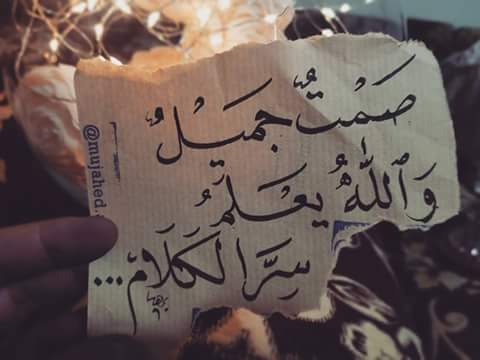 صَمْتٌ جَمِيْلٌ
وَٱللّٰهُ يَعْلَمُ
سِرَّ الْكَلَامْ...
@mujahed.